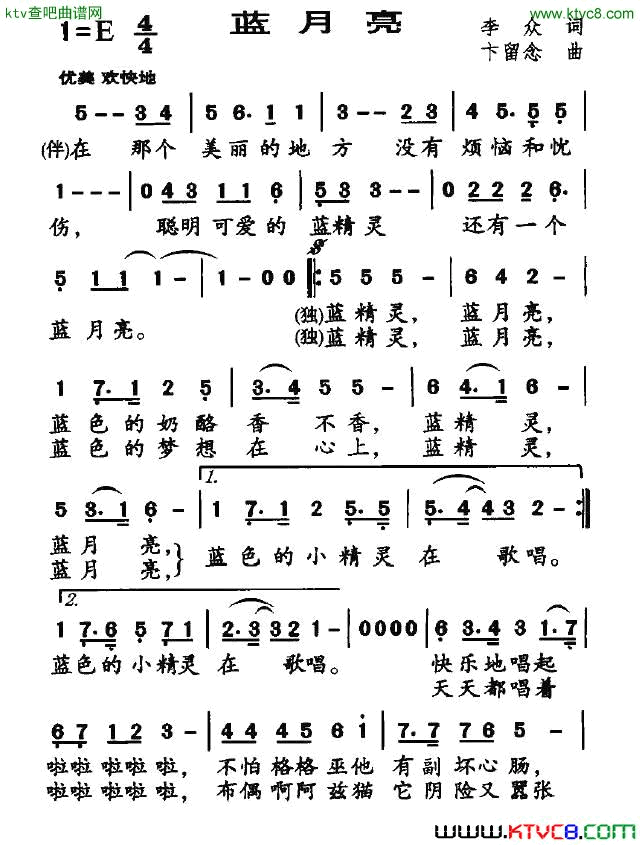 ktv查吧曲谱网
www.ktvc8.com
1=E 4/4
蓝月亮
李众 词
卞留念 曲
优美 欢快地
5 - - 3 4 | 5 6. 1 1 | 3 - - 2 3 | 4 5. 5 5 |
(伴)在 那个 美丽的地方 没有 烦恼和忧
1 - - - | 0 4 3 1 1 6 | 5 3 3 - - | 0 2 2 2 6. |
伤， 聪明可爱的 蓝精灵 还有一个
5 1 1 1 - | 1 - 0 0 |: 5 5 5 - | 6 4 2 - |
蓝月亮。 (独)蓝精灵， 蓝月亮，
(独)蓝精灵， 蓝月亮，
1 7. 1 2 5 | 3. 4 5 5 - | 6 4. 1 6 - |
蓝色的奶酪香不香， 蓝精灵，
蓝色的梦想在心上， 蓝精灵，
1.
5 3. 1 6 - | 1 7. 1 2 5. 5 | 5. 4 4 3 2 - :|
蓝月亮， 蓝色的小精灵在 歌唱。
蓝月亮，
2.
1 7. 6 5 7 1 | 2. 3 3 2 1 - | 0 0 0 0 | 6 3. 4 3 1. 7 |
蓝色的小精灵在 歌唱。 快乐地唱起
天天都唱着
6 7 1 2 3 - | 4 4 4 5 6 i | 7. 7 7 6 5 - |
啦啦啦啦啦， 不怕格格巫他有副坏心肠，
啦啦啦啦啦， 布偶啊阿兹猫它阴险又嚣张
www.KTVC8.com